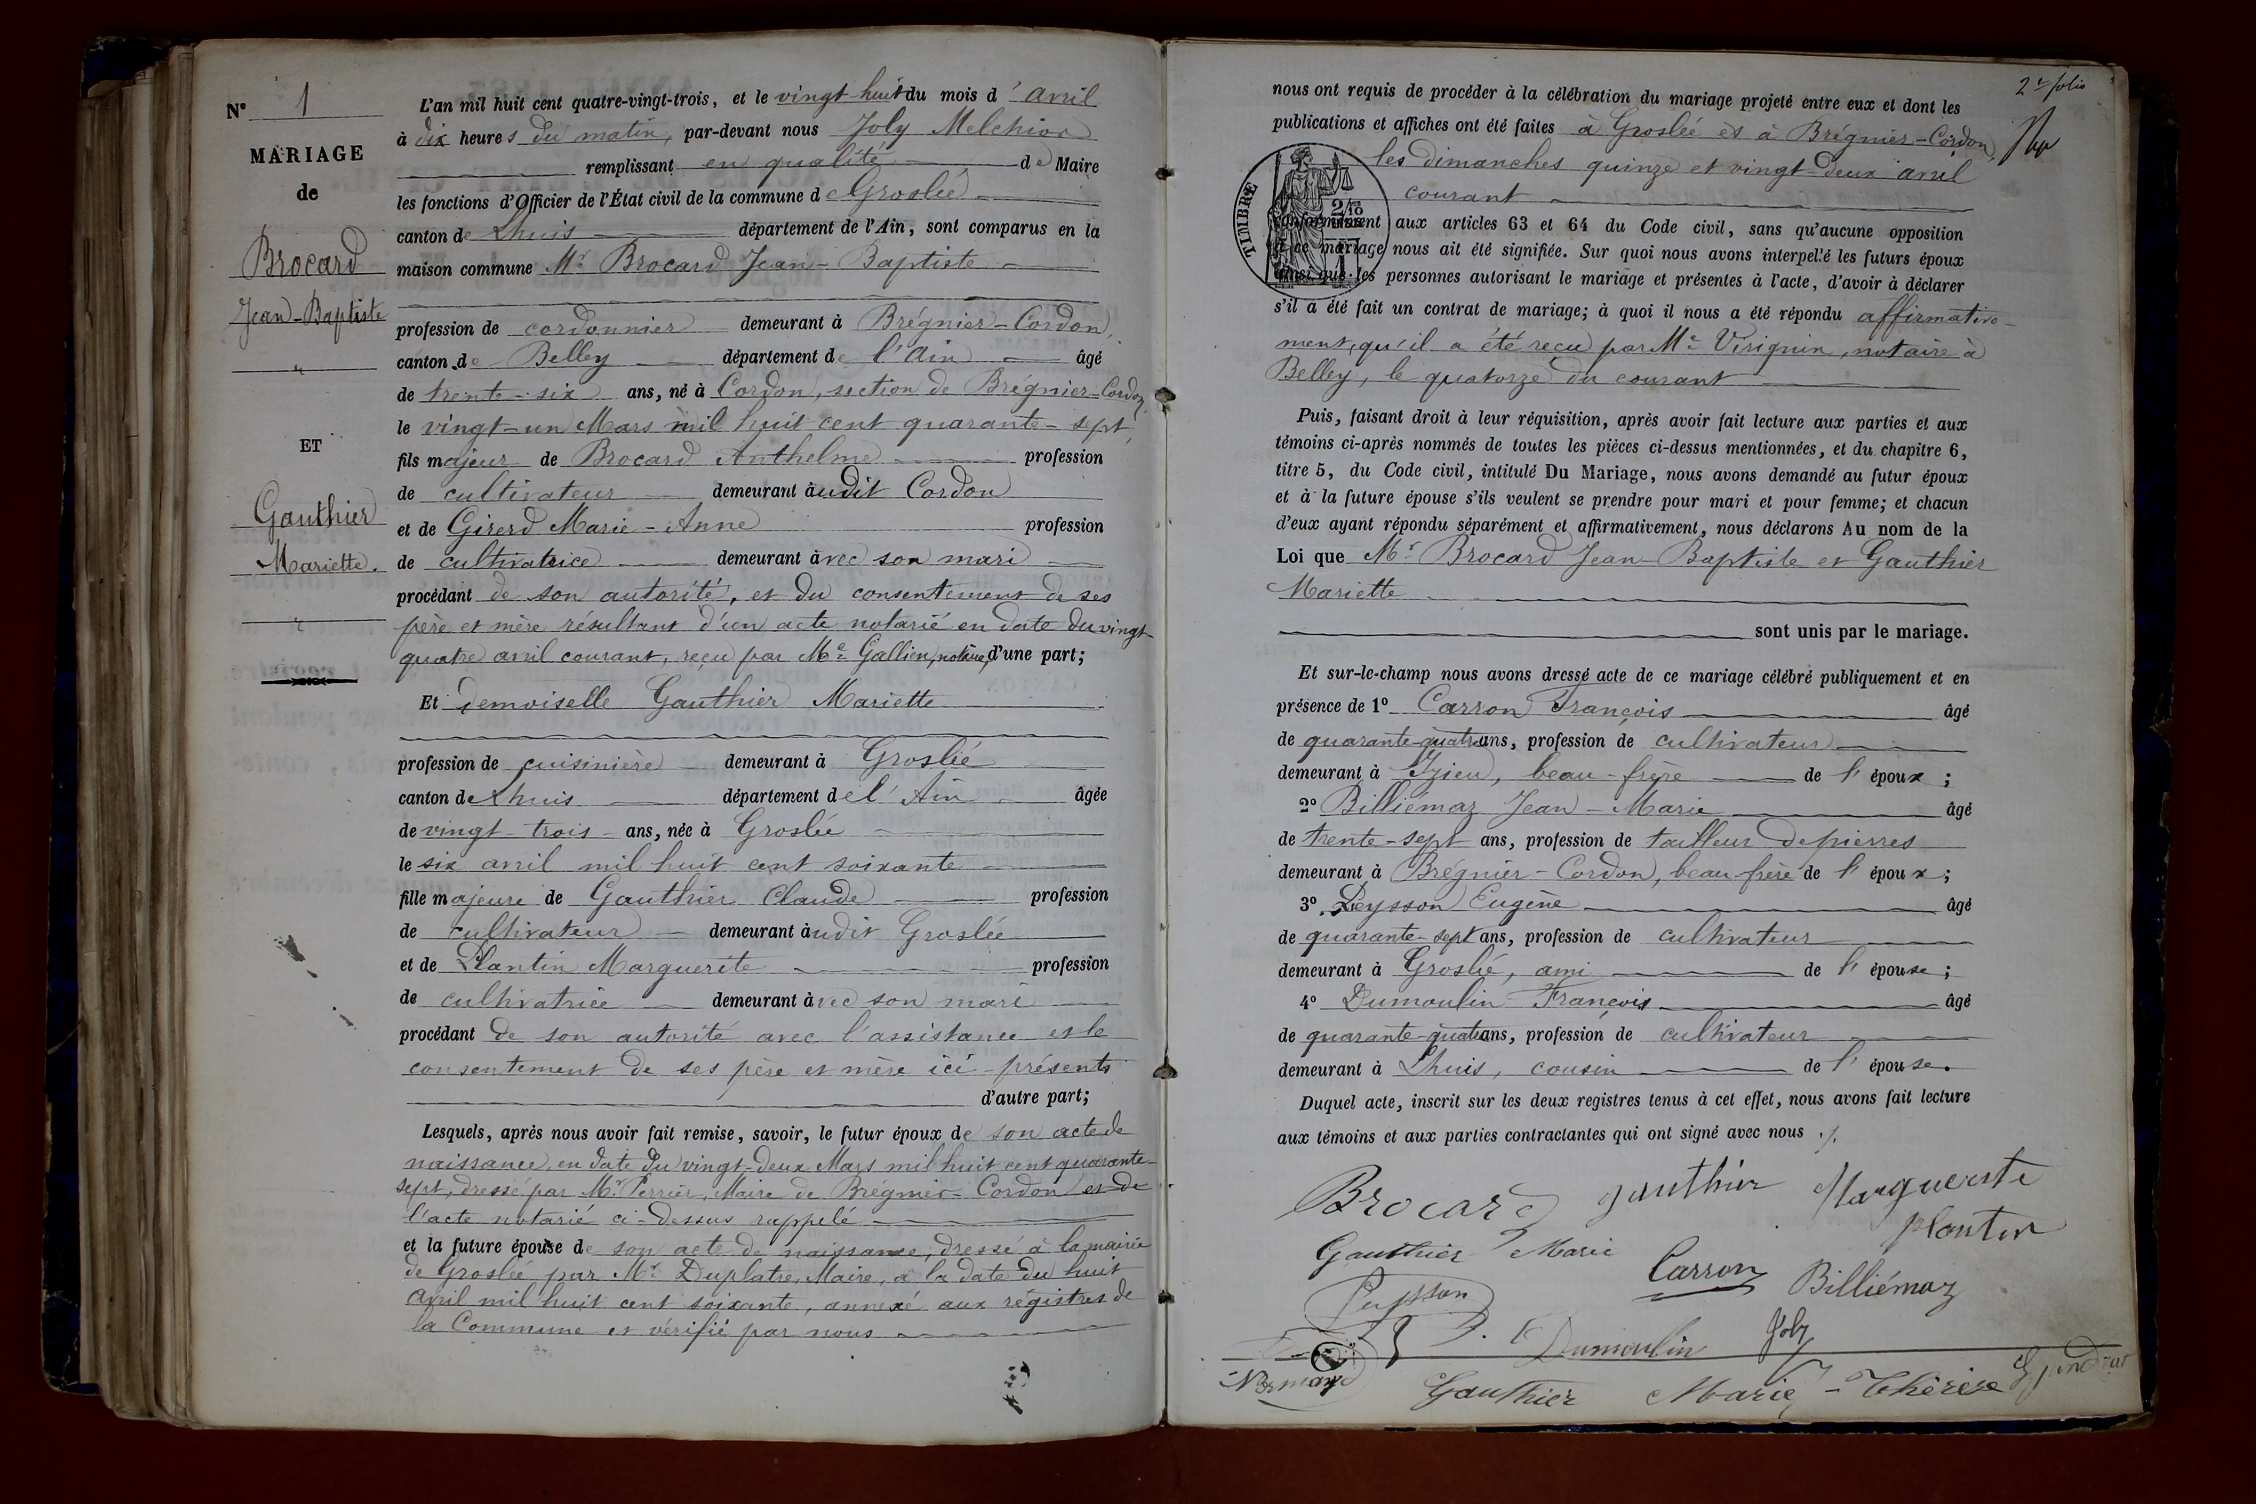 N° 1
MARIAGE
de
Brocard
Jean-Baptiste
"
ET
Gauthier
Mariette.
"
L'an mil huit cent quatre-vingt-trois, et le vingt-huit du mois d'avril
à dix heures du matin, par-devant nous Joly Melchior
remplissant en qualité de Maire
les fonctions d'Officier de l'État civil de la commune de Groslée
canton de Lhuis département de l'Ain, sont comparus en la
maison commune Mr Brocard Jean-Baptiste
profession de cordonnier demeurant à Brégnier-Cordon,
canton de Belley département de l'Ain âgé
de trente-six ans, né à Cordon, section de Brégnier-Cordon,
le vingt-un Mars mil huit cent quarante-sept,
fils majeur de Brocard Anthelme profession
de cultivateur demeurant audit Cordon
et de Girerd Marie-Anne profession
de cultivatrice demeurant avec son mari
procédant de son autorité, et du consentement de ses
père et mère résultant d'un acte notarié en date du vingt-
quatre avril courant, reçu par Me Gallien, notaire, d'une part;
Et demoiselle Gauthier Mariette
profession de cuisinière demeurant à Groslée
canton de Lhuis département de l'Ain âgée
de vingt-trois ans, née à Groslée
le six avril mil huit cent soixante
fille majeure de Gauthier Claude profession
de cultivateur demeurant audit Groslée
et de Plantin Marguerite profession
de cultivatrice demeurant avec son mari
procédant de son autorité avec l'assistance et le
consentement de ses père et mère ici présents
d'autre part;
Lesquels, après nous avoir fait remise, savoir, le futur époux de son acte de
naissance, en date du vingt-deux Mars mil huit cent quarante-
sept, dressé par Mr Perrier, Maire de Brégnier-Cordon et de
l'acte notarié ci-dessus rappelé
et la future épouse de son acte de naissance, dressé à la mairie
de Groslée par Mr Duplatre, Maire, à la date du huit
avril mil huit cent soixante, annexé aux régistres de
la Commune et vérifié par nous
2e folio
nous ont requis de procéder à la célébration du mariage projeté entre eux et dont les
publications et affiches ont été faites à Groslée et à Brégnier-Cordon,
les dimanches quinze et vingt-deux avril
courant
TIMBRE
2/10
conformément aux articles 63 et 64 du Code civil, sans qu'aucune opposition
à ce mariage nous ait été signifiée. Sur quoi nous avons interpellé les futurs époux
ainsi que les personnes autorisant le mariage et présentes à l'acte, d'avoir à déclarer
s'il a été fait un contrat de mariage; à quoi il nous a été répondu affirmative-
ment, qu'il a été reçu par Me Virignin, notaire à
Belley, le quatorze du courant
Puis, faisant droit à leur réquisition, après avoir fait lecture aux parties et aux
témoins ci-après nommés de toutes les pièces ci-dessus mentionnées, et du chapitre 6,
titre 5, du Code civil, intitulé Du Mariage, nous avons demandé au futur époux
et à la future épouse s'ils veulent se prendre pour mari et pour femme; et chacun
d'eux ayant répondu séparément et affirmativement, nous déclarons Au nom de la
Loi que Mr Brocard Jean-Baptiste et Gauthier
Mariette
sont unis par le mariage.
Et sur-le-champ nous avons dressé acte de ce mariage célébré publiquement et en
présence de 1° Carron François âgé
de quarante-quatre ans, profession de cultivateur
demeurant à Izieu, beau-frère de l'époux;
2° Billiémaz Jean-Marie âgé
de trente-sept ans, profession de tailleur de pierres
demeurant à Brégnier-Cordon, beau-frère de l'époux;
3° Peysson Eugène âgé
de quarante-sept ans, profession de cultivateur
demeurant à Groslée, ami de l'épouse;
4° Dumoulin François âgé
de quarante-quatre ans, profession de cultivateur
demeurant à Lhuis, cousin de l'épouse.
Duquel acte, inscrit sur les deux registres tenus à cet effet, nous avons fait lecture
aux témoins et aux parties contractantes qui ont signé avec nous ./.
Brocard gauthier Marguerite
plantin
Gauthier Marie
Carron Billiémaz
Peysson
Dumoulin Joly
Normand
Gauthier Marie-Thérèse